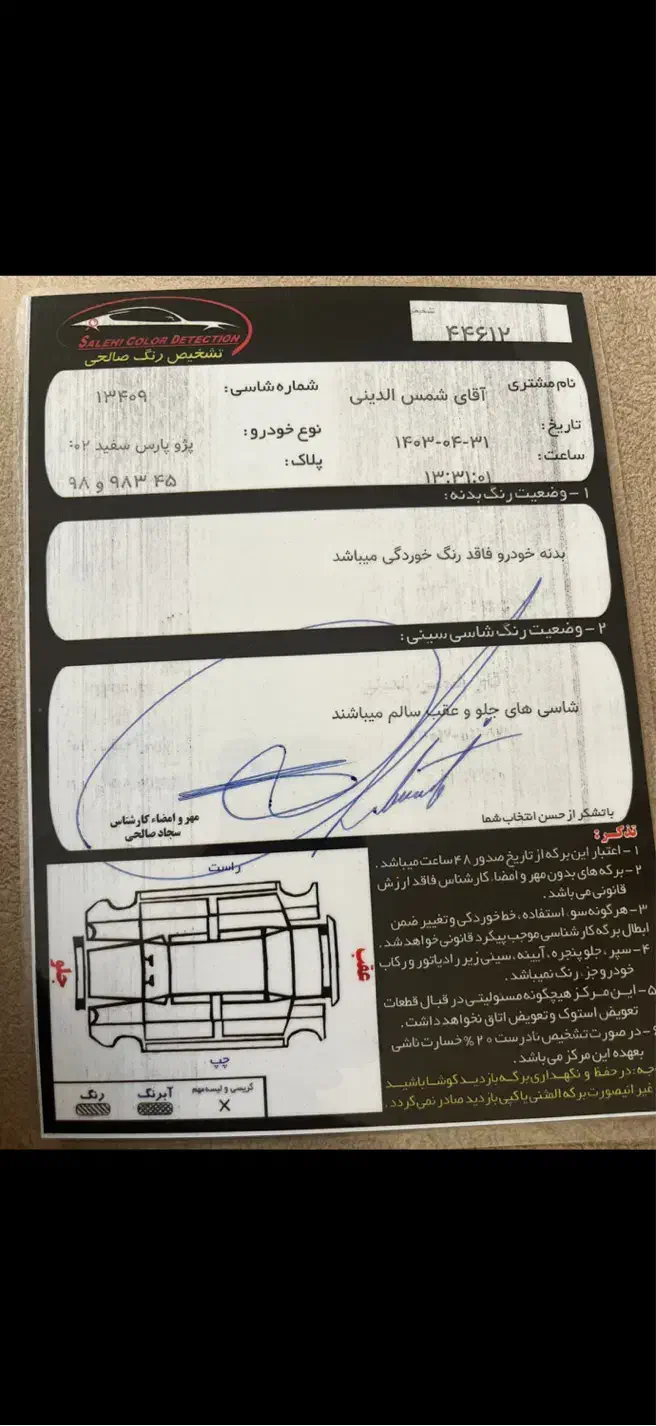 SALEHI COLOR DETECTION
تشخیص رنگ صالحی
تشخیص
۴۴۶۱۲
نام مشتری آقای شمس الدینی
شماره شاسی: ۱۳۴۰۹
تاریخ: ۱۴۰۳-۰۴-۳۱
نوع خودرو: پژو پارس سفید ۰۲:
ساعت: ۱۳:۳۱:۰۱
پلاک: ۴۵ ۹۸۳ و ۹۸
۱-وضعیت رنگ بدنه:
بدنه خودرو فاقد رنگ خوردگی میباشد
۲-وضعیت رنگ شاسی سینی:
شاسی های جلو و عقب سالم میباشند
باتشکر از حسن انتخاب شما
مهر و امضاء کارشناس
سجاد صالحی
تذکر:
۱-اعتبار این برکه از تاریخ صدور ۴۸ ساعت میباشد.
۲-برکه های بدون مهر و امضا، کارشناس فاقد ارزش
قانونی می باشد.
۳-هرگونه سوء استفاده، خط خوردکی و تغییر ضمن
ابطال برکه کارشناسی موجب پیکرد قانونی خواهد شد.
۴-سپر، جلو پنجره، آیینه، سینی زیر رادیاتور و رکاب
خودرو جزء رنگ نمیباشد.
۵-این مرکز هیچکونه مسئولیتی در قبال قطعات
تعویض استوک و تعویض اتاق نخواهد داشت.
-در صورت تشخیص نادرست ۲۰% خسارت ناشی
بعهده این مرکز می باشد.
جه: در حفظ و نکهداری برکه بازدید کوشا باشید
غیر اینصورت برکه المثنی یا کپی بازدید صادر نمی گردد.
راست
جلو
عقب
چپ
رنگ
آبرنگ
گریسی و لیسه مهم
X